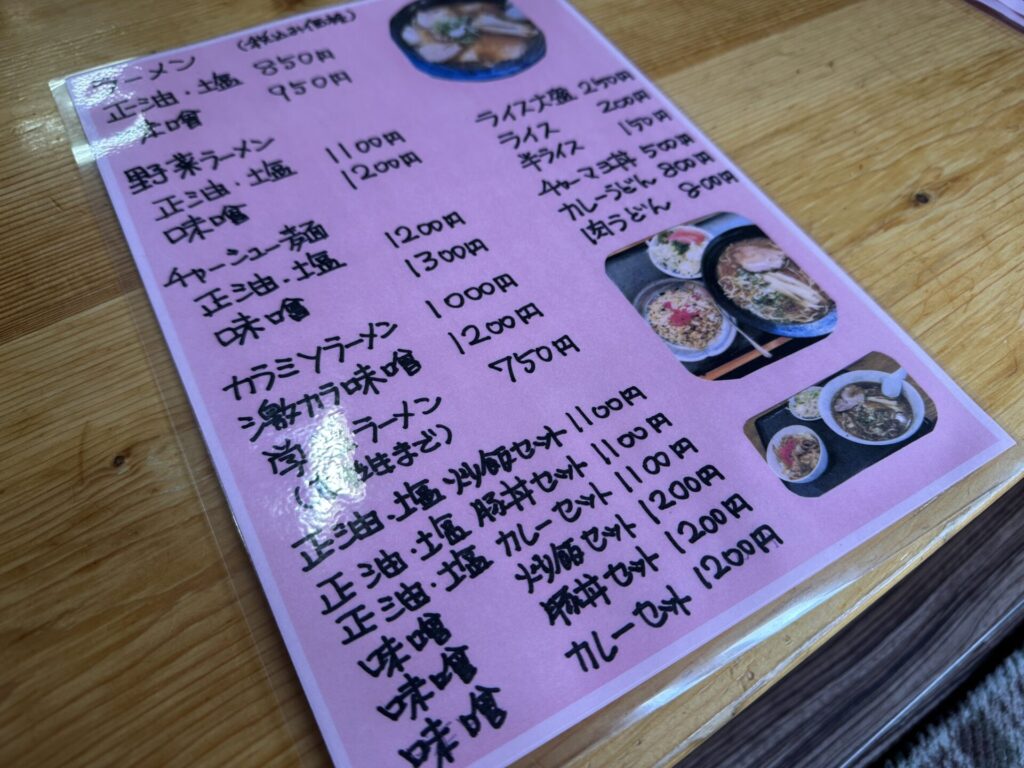 (税込み価格)
ラーメン
正油・塩 850円
味噌 950円
野菜ラーメン
正油・塩 1100円
味噌 1200円
チャーシュー麺
正油・塩 1200円
味噌 1300円
カラミソラーメン 1000円
激カラ味噌 1200円
ラーメン 750円
生まで)
正油・塩 炒飯セット 1100円
正油・塩 豚丼セット 1100円
正油・塩 カレーセット 1100円
味噌 炒飯セット 1200円
味噌 豚丼セット 1200円
味噌 カレーセット 1200円
ライス大盛 250円
ライス 200円
半ライス 150円
チャーマヨ丼 500円
カレーうどん 800円
肉うどん 800円